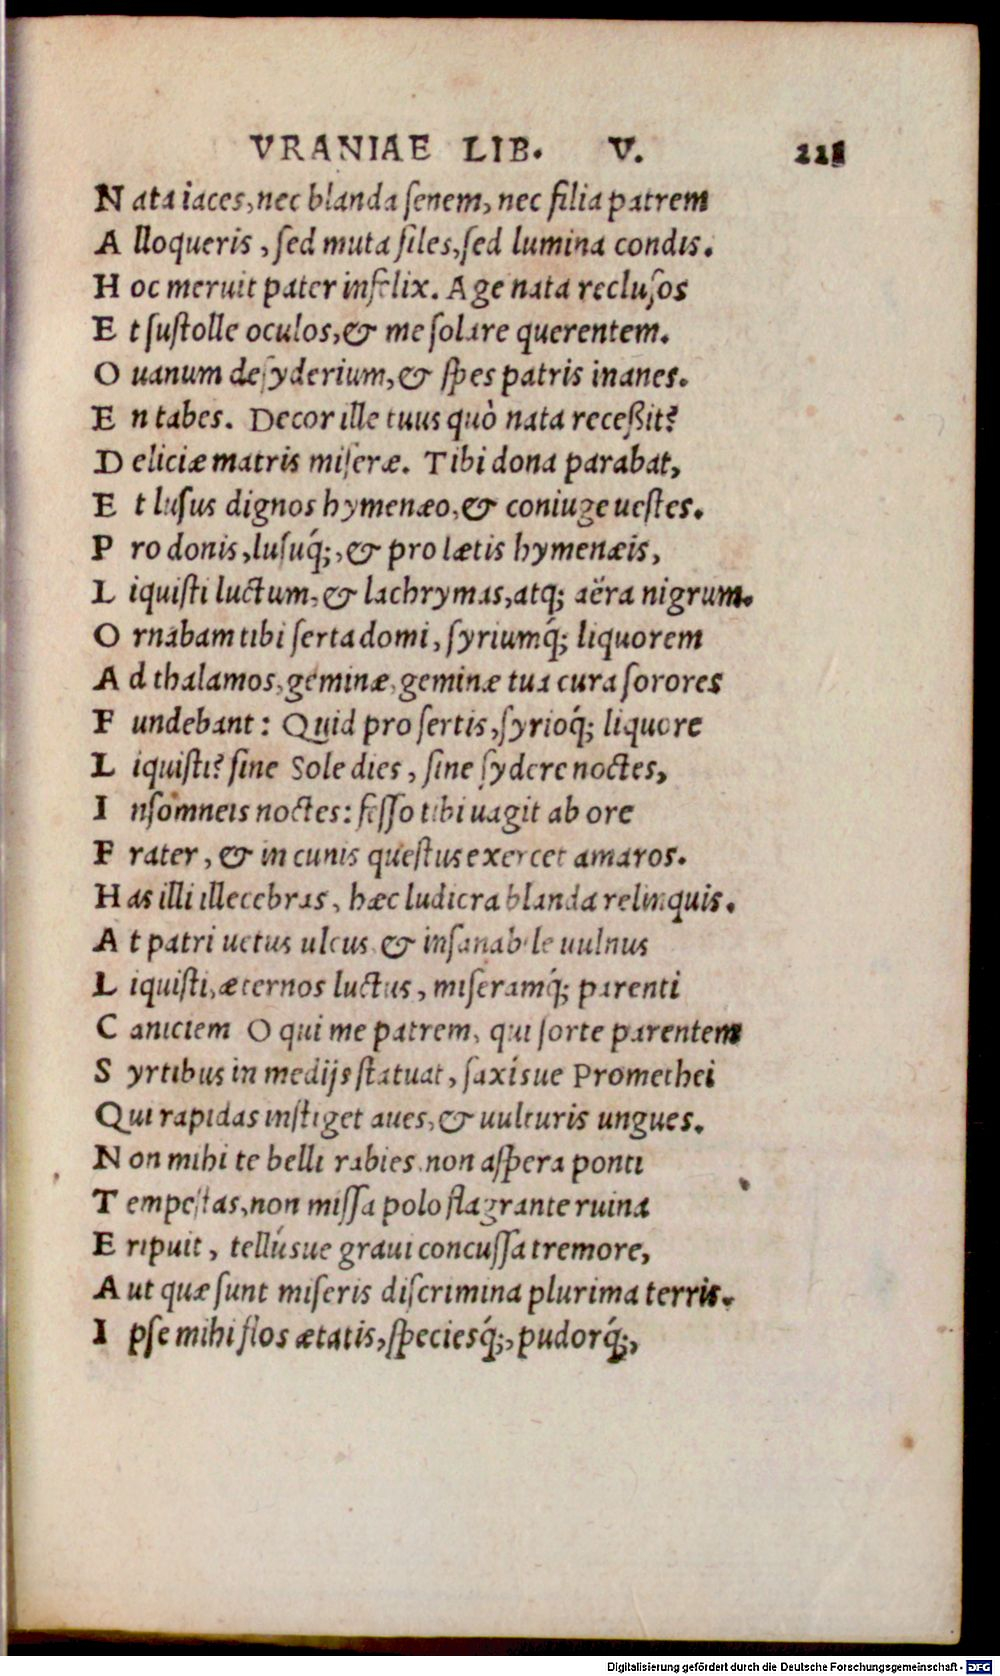 VRANIAE LIB. V.
N ata iaces, nec blanda ſenem, nec filia patrem
A lloqueris, ſed muta ſiles, ſed lumina condis.
H oc meruit pater infelix. Age nata recluſos
E t ſuſtolle oculos, & me ſolare querentem.
O uanum deſyderium, & ſpes patris inanes.
E n tabes. Decor ille tuus quò nata receßit?
D eliciæ matris miſeræ. Tibi dona parabat,
E t luſus dignos hymenæo, & coniuge ueſtes.
P ro donis, luſuq́;, & pro lætis hymenæis,
L iquiſti luctum, & lachrymas, atq; aëra nigrum.
O rnabam tibi ſerta domi, ſyriumq́; liquorem
A d thalamos, geminæ, geminæ tua cura ſorores
F undebant: Quid pro ſertis, ſyrioq́; liquore
L iquiſti? ſine Sole dies, ſine ſydere noctes,
I nſomneis noctes: feſſo tibi uagit ab ore
F rater, & in cunis queſtus exercet amaros.
H as illi illecebras, hæc ludicra blanda relinquis.
A t patri uetus ulcus & inſanabile uulnus
L iquiſti, æternos luctus, miſeramq́; parenti
C aniciem O qui me patrem, qui ſorte parentem
S yrtibus in medijs ſtatuat, ſaxíſue Promethei
Qui rapidas inſtiget aues, & uulturis ungues.
N on mihi te belli rabies, non aſpera ponti
T empeſtas, non miſſa polo flagrante ruina
E ripuit, tellúſue graui concuſſa tremore,
A ut quæ ſunt miſeris diſcrimina plurima terris.
I pſe mihi flos ætatis, ſpeciesq́;, pudorq́;,
Digitalisierung gefördert durch die Deutsche Forschungsgemeinschaft - DFG